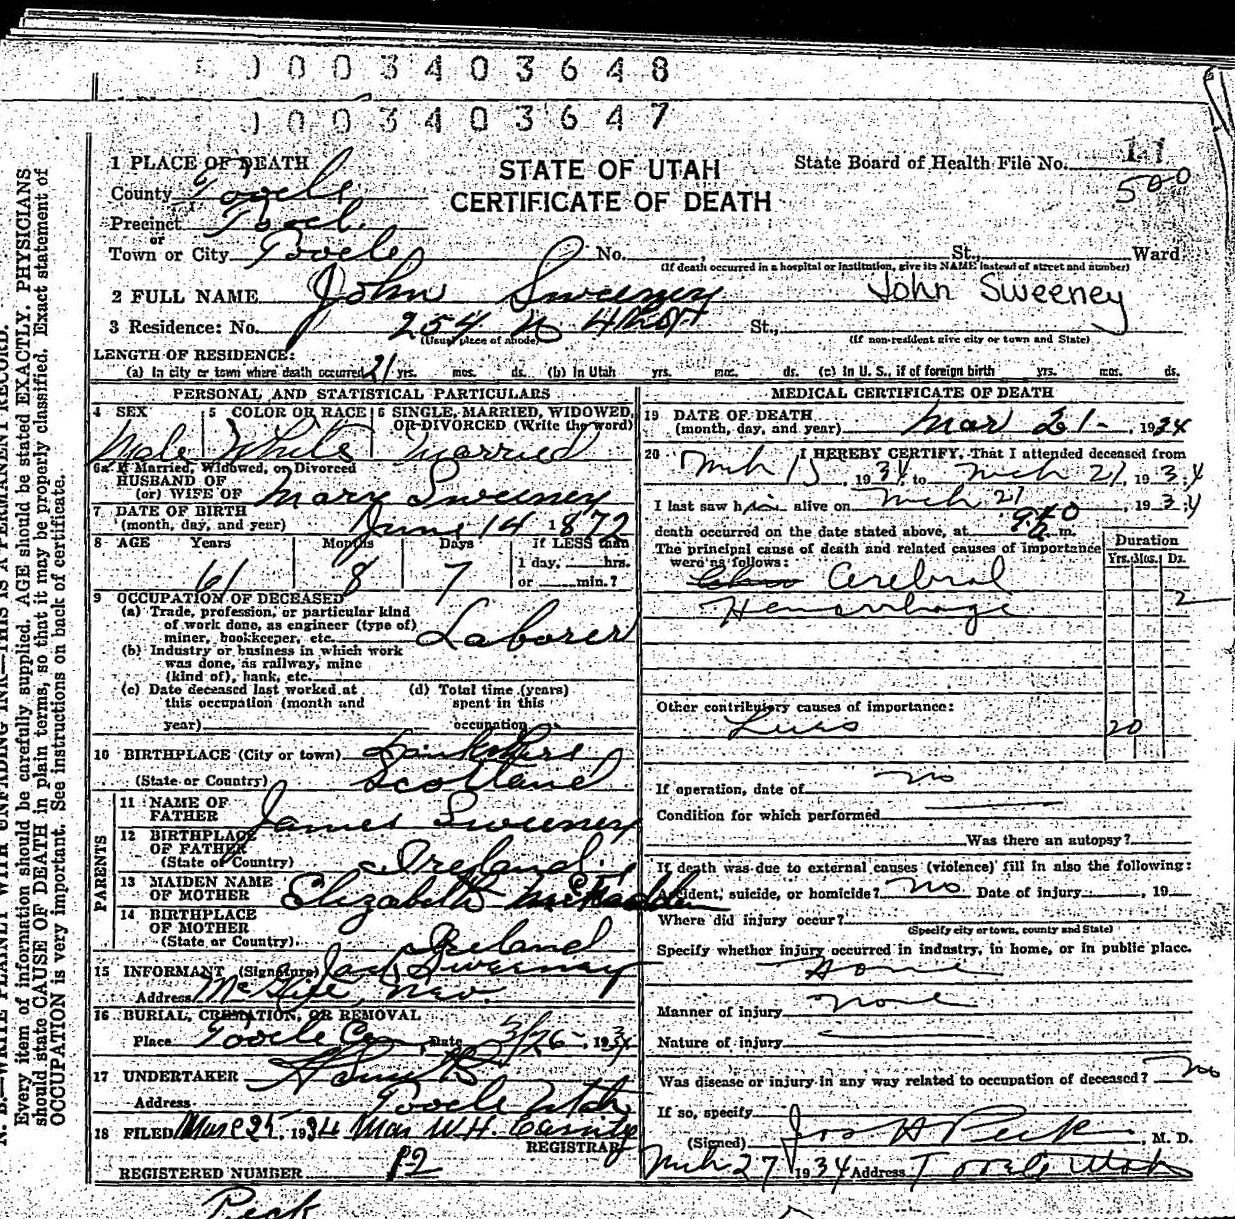 0 0 0 3 4 0 3 6 4 8
0 0 3 4 0 3 6 4 7
1 PLACE OF DEATH
County Tooele
Precinct Tooele
or
Town or City Tooele No. , St., Ward
(If death occurred in a hospital or institution, give its NAME instead of street and number)
STATE OF UTAH
CERTIFICATE OF DEATH
State Board of Health File No. 11
500
2 FULL NAME John Sweeney John Sweeney
3 Residence: No. 254 N 4th St.,
(Usual place of abode) (If non-resident give city or town and State)
LENGTH OF RESIDENCE:
(a) In city or town where death occurred 21 yrs. mos. ds. (b) In Utah yrs. mos. ds. (c) In U. S., if of foreign birth yrs. mos. ds.
PERSONAL AND STATISTICAL PARTICULARS
4 SEX 5 COLOR OR RACE 6 SINGLE, MARRIED, WIDOWED, OR DIVORCED (Write the word)
Male White Married
6a If Married, Widowed, or Divorced
HUSBAND OF
(or) WIFE OF Mary Sweeney
7 DATE OF BIRTH
(month, day, and year) June 14 1872
8 AGE Years Months Days If LESS than
1 day, hrs.
61 8 7 or min.?
9 OCCUPATION OF DECEASED
(a) Trade, profession, or particular kind
of work done, as engineer (type of)
miner, bookkeeper, etc. Laborer
(b) Industry or business in which work
was done, as railway, mine
(kind of), bank, etc.
(c) Date deceased last worked at (d) Total time (years)
this occupation (month and spent in this
year) occupation
10 BIRTHPLACE (City or town)
(State or Country) Scotland
PARENTS
11 NAME OF
FATHER James Sweeney
12 BIRTHPLACE
OF FATHER
(State or Country) Ireland
13 MAIDEN NAME
OF MOTHER Elizabeth McFadden
14 BIRTHPLACE
OF MOTHER
(State or Country) Ireland
15 INFORMANT (Signature) Jack Sweeney
Address McGill, Nev.
16 BURIAL, CREMATION, OR REMOVAL
Place Tooele Date 3/26 1934
17 UNDERTAKER
Address Tooele Utah
18 FILED 1934 Mrs W.H.
REGISTRAR
REGISTERED NUMBER P2
Peck
MEDICAL CERTIFICATE OF DEATH
19 DATE OF DEATH
(month, day, and year) Mar 21 - , 1934
20 I HEREBY CERTIFY, That I attended deceased from
Mch 15 , 1934 to Mch 21, 1934
I last saw him alive on Mch 21 , 1934
death occurred on the date stated above, at 9:40 a m.
The principal cause of death and related causes of importance
were as follows:
Duration
Yrs. Mos. Ds.
Cerebral
Hemorrhage 2
Other contributory causes of importance:
Lues 20
no
If operation, date of
Condition for which performed
Was there an autopsy?
If death was due to external causes (violence) fill in also the following:
Accident, suicide, or homicide? No Date of injury , 19
Where did injury occur?
(Specify city or town, county and State)
Specify whether injury occurred in industry, in home, or in public place.
Home
Manner of injury None
Nature of injury
Was disease or injury in any way related to occupation of deceased? No
If so, specify
(Signed) Jos H Peck , M. D.
Mch 27 1934 Address Tooele Utah
N. B.—WRITE PLAINLY WITH UNFADING INK—THIS IS A PERMANENT RECORD.
Every item of information should be carefully supplied. AGE should be stated EXACTLY. PHYSICIANS
should state CAUSE OF DEATH in plain terms, so that it may be properly classified. Exact statement of
OCCUPATION is very important. See instructions on back of certificate.